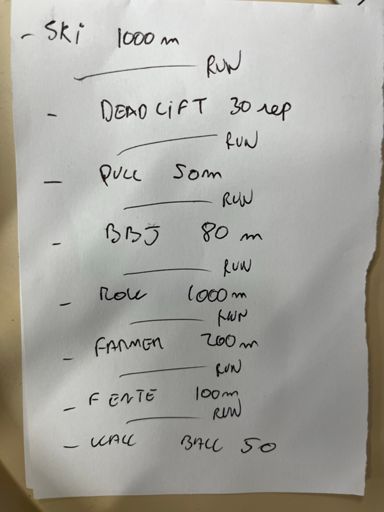 - Ski 1000 m
RUN
- DEADLIFT 30 rep
RUN
- PULL 50m
RUN
- BBJ 80 m
RUN
- ROW 1000 m
RUN
- FARMER 200 m
RUN
- FENTE 100m
RUN
- WALL BALL 50